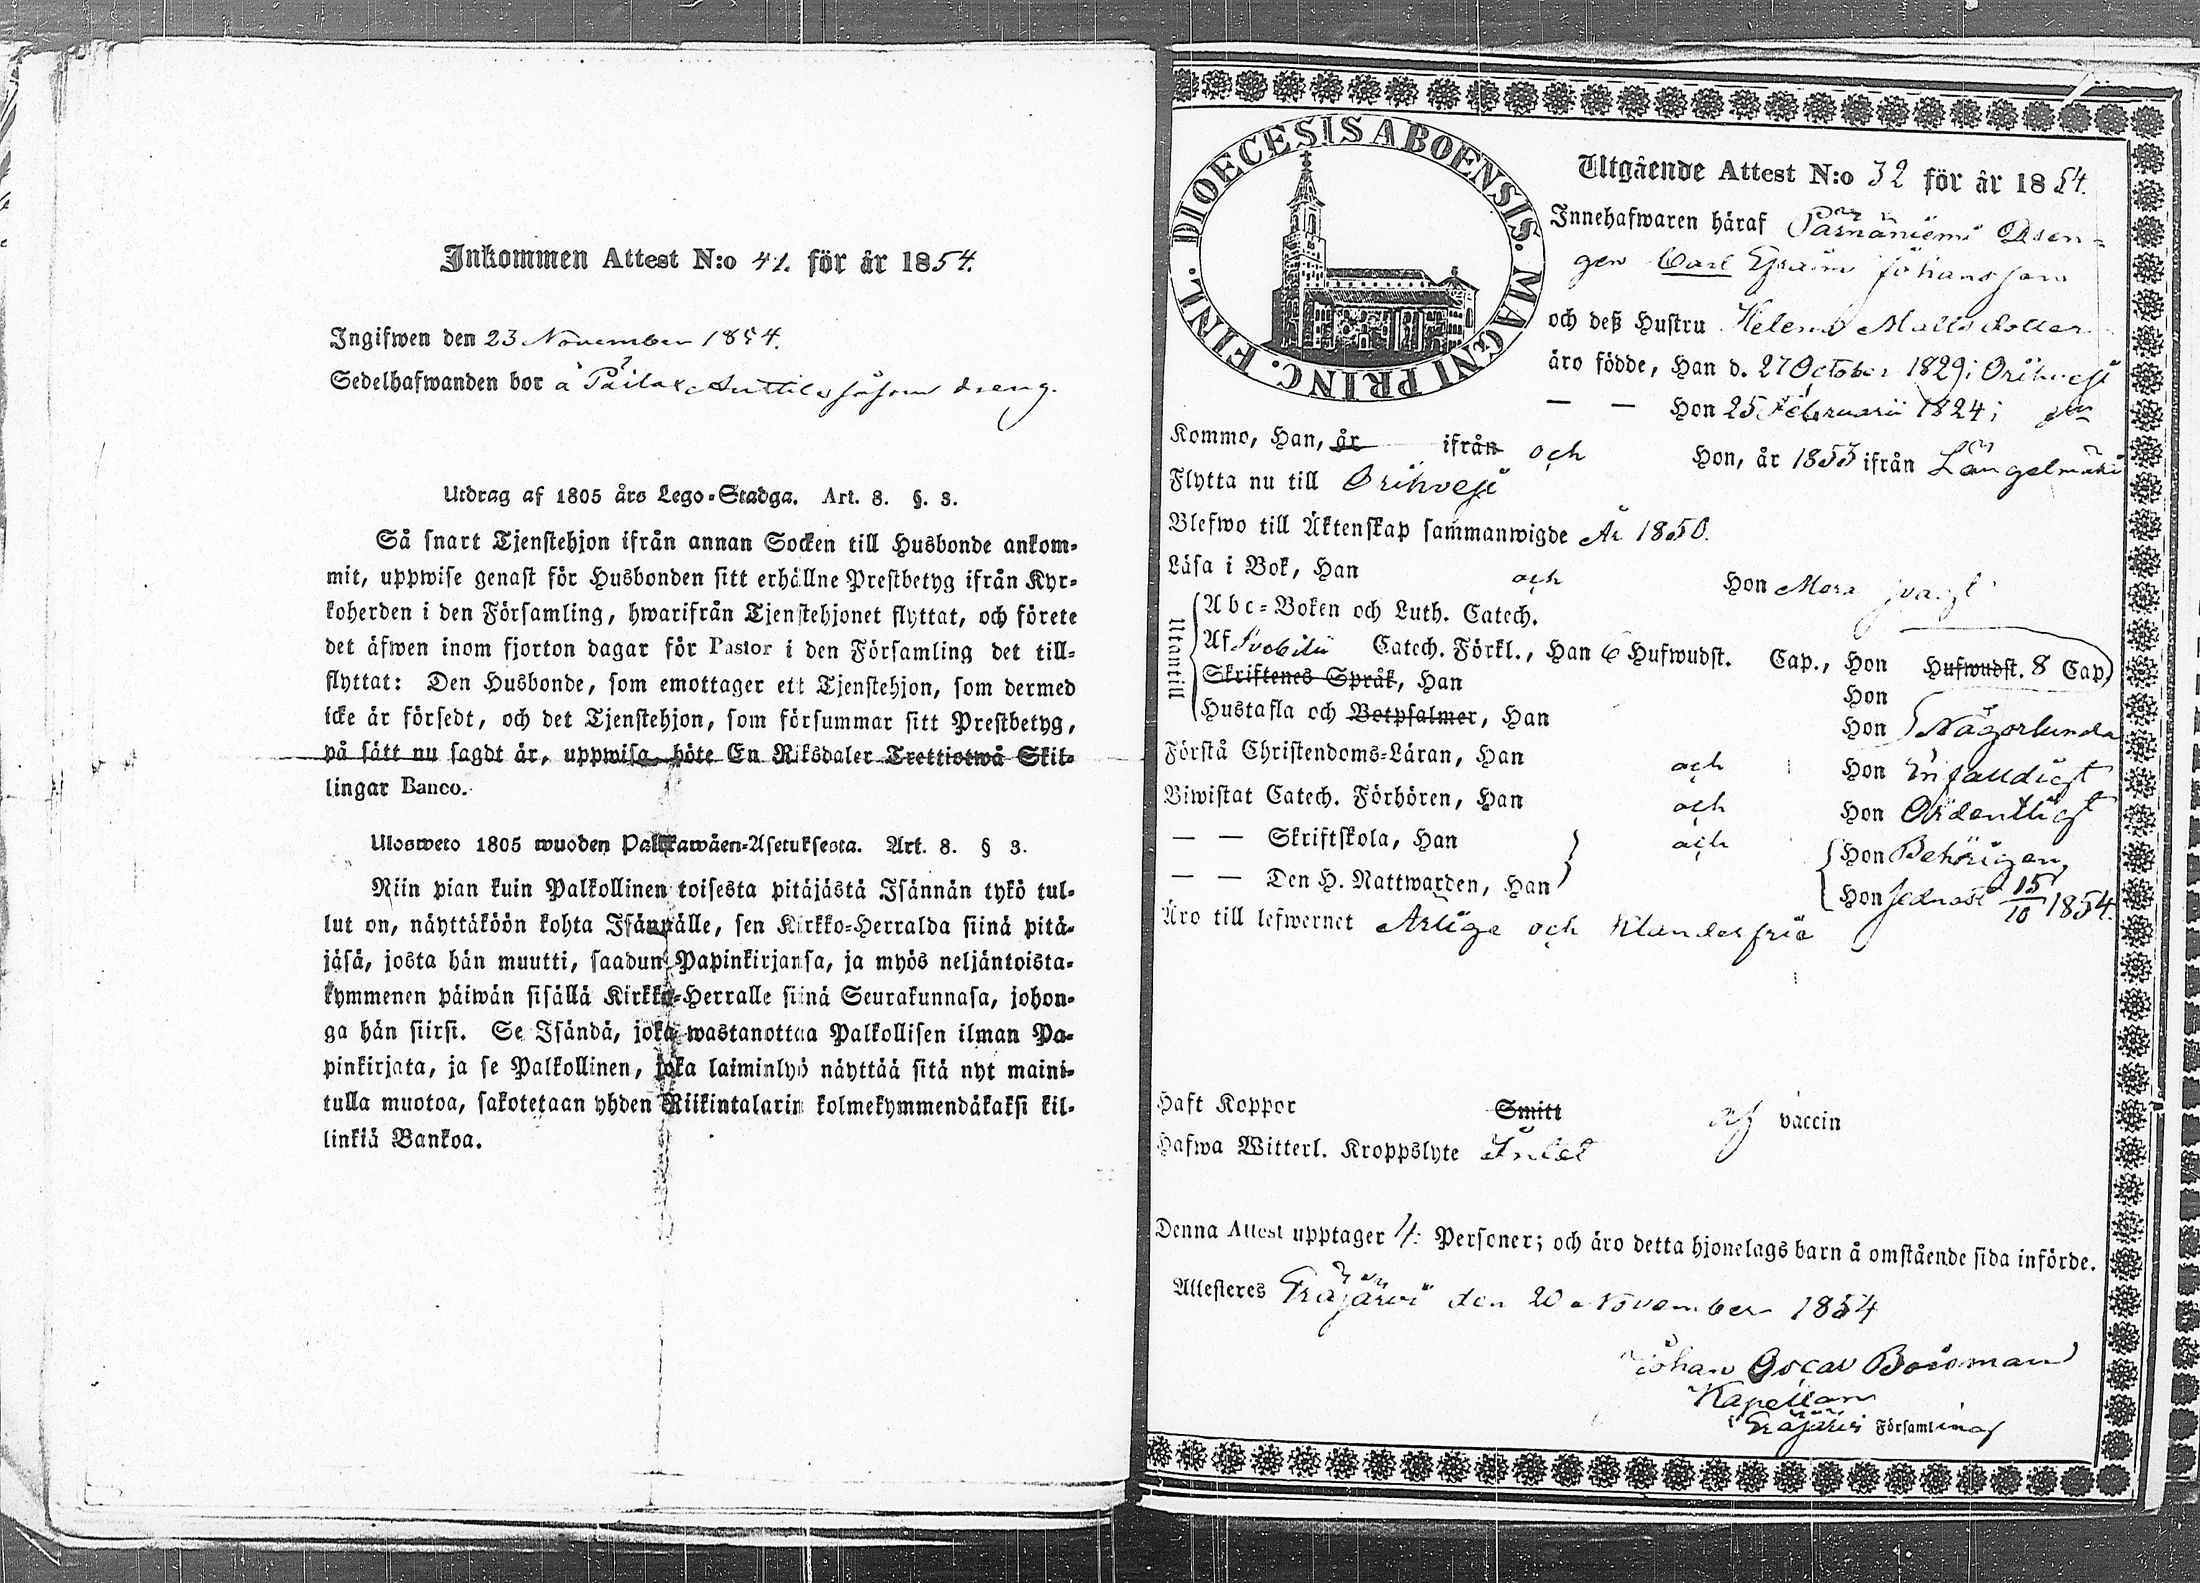 Inkommen Attest N:o 41. för år 1854.
Ingifwen den 23 November 1854.
Sedelhafwanden bor å Päilax Anttila dreng.
Utdrag af 1805 års Lego-Stadga. Art. 8. §. 3.
Så snart Tjenstehjon ifrån annan Socken till Husbonde ankom-
mit, uppwise genast för Husbonden sitt erhållne Prestbetyg ifrån Kyr-
koherden i den Församling, hwarifrån Tjenstehjonet flyttat, och förete
det äfwen inom fjorton dagar för Pastor i den Församling det till-
flyttat: Den Husbonde, som emottager ett Tjenstehjon, som dermed
icke är försedt, och det Tjenstehjon, som försummar sitt Prestbetyg,
på sätt nu sagdt är, uppwisa, böte En Riksdaler Trettiotwå Skil-
lingar Banco.
Ulosweto 1805 wuoden Palkkawäen-Asetuksesta. Art. 8. § 3.
Niin pian kuin Palkollinen toisesta pitäjästä Isännän tykö tul-
lut on, näyttäköön kohta Isännälle, sen Kirkko-Herralda siinä pitä-
jäsä, josta hän muutti, saadun Papinkirjansa, ja myös neljäntoista-
kymmenen päiwän sisällä Kirkko-Herralle siinä Seurakunnasa, johon-
ga hän siirsi. Se Isändä, joka wastanottaa Palkollisen ilman Pa-
pinkirjata, ja se Palkollinen, joka laiminlyö näyttää sitä nyt maini-
tulla muotoa, sakotetaan yhden Riikintalarin kolmekymmendäkaksi kil-
linkiä Bankoa.
DIOECESIS ABOENSIS. MAGNI PRINC. FINL.
Utgående Attest N:o 32 för år 1854.
Innehafwaren häraf Pärnäniemi Dren-
gen Carl Efraim Johansson
och deß Hustru Helena Mattsdotter
äro födde, Han d. 27 October 1829 i Orihvesi
— — Hon 25 Februarii 1824 i
Kommo, Han, år ifrån och Hon, år 1853 ifrån Längelmäki
Flytta nu till Orihvesi
Blefwo till Äktenskap sammanwigde År 1850.
Läsa i Bok, Han och Hon Mera svagt
Utantill
Abc-Boken och Luth. Catech.
Af Svebilii Catech. Förkl., Han 6 Hufwudst. Cap., Hon Hufwudst. 8 Cap
Skriftenes Språk, Han Hon
Hustafla och Botpsalmer, Han Hon Någorlunda
Förstå Christendoms-Läran, Han och Hon Enfaldigt
Biwistat Catech. Förhören, Han och Hon Ordentligt
— — Skriftskola, Han och Hon Behörigen,
— — Den H. Nattwarden, Han Hon sednast 15/10 1854.
Äro till lefwernet Ärlige och Klanderfrie
Haft Koppor Smitt af vaccin
Hafwa Witterl. Kroppslyte Intet
Denna Attest upptager 4: Personer; och äro detta hjonelags barn å omstående sida införde.
Attesteres Eräjärvi den 20 November 1854
Johan Oscar Boisman
Kapellan
i Eräjärvi Församling